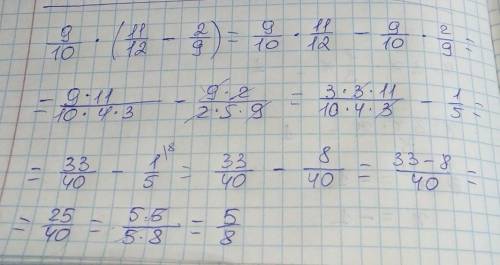 9/10 · (11/12 − 2/9) = 9/10 · 11/12 − 9/10 · 2/9 =
= 9·11/10·4·3 − 9·2/2·5·9 = 3·3·11/10·4·3 − 1/5 =
= 33/40 − 1/5 \8 = 33/40 − 8/40 = 33−8/40 =
= 25/40 = 5·5/5·8 = 5/8